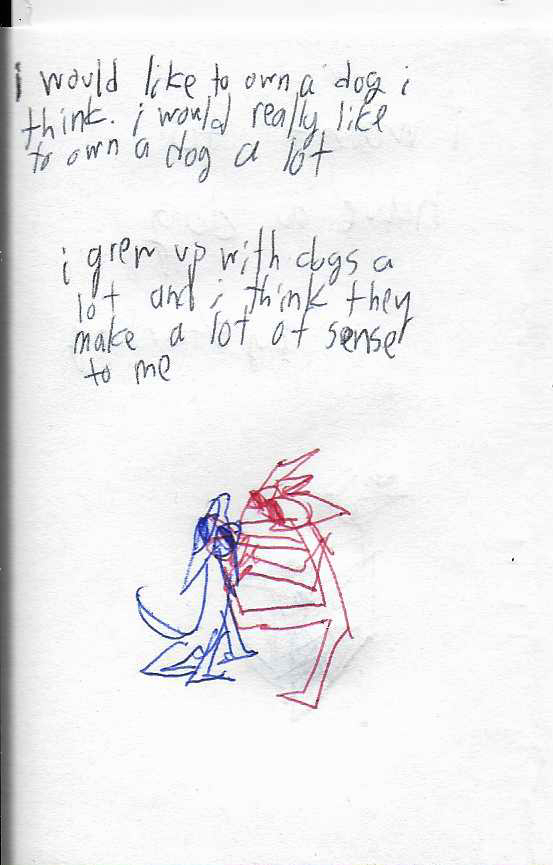 i would like to own a dog i
think. i would really like
to own a dog a lot
i grew up with dogs a
lot and i think they
make a lot of sense
to me